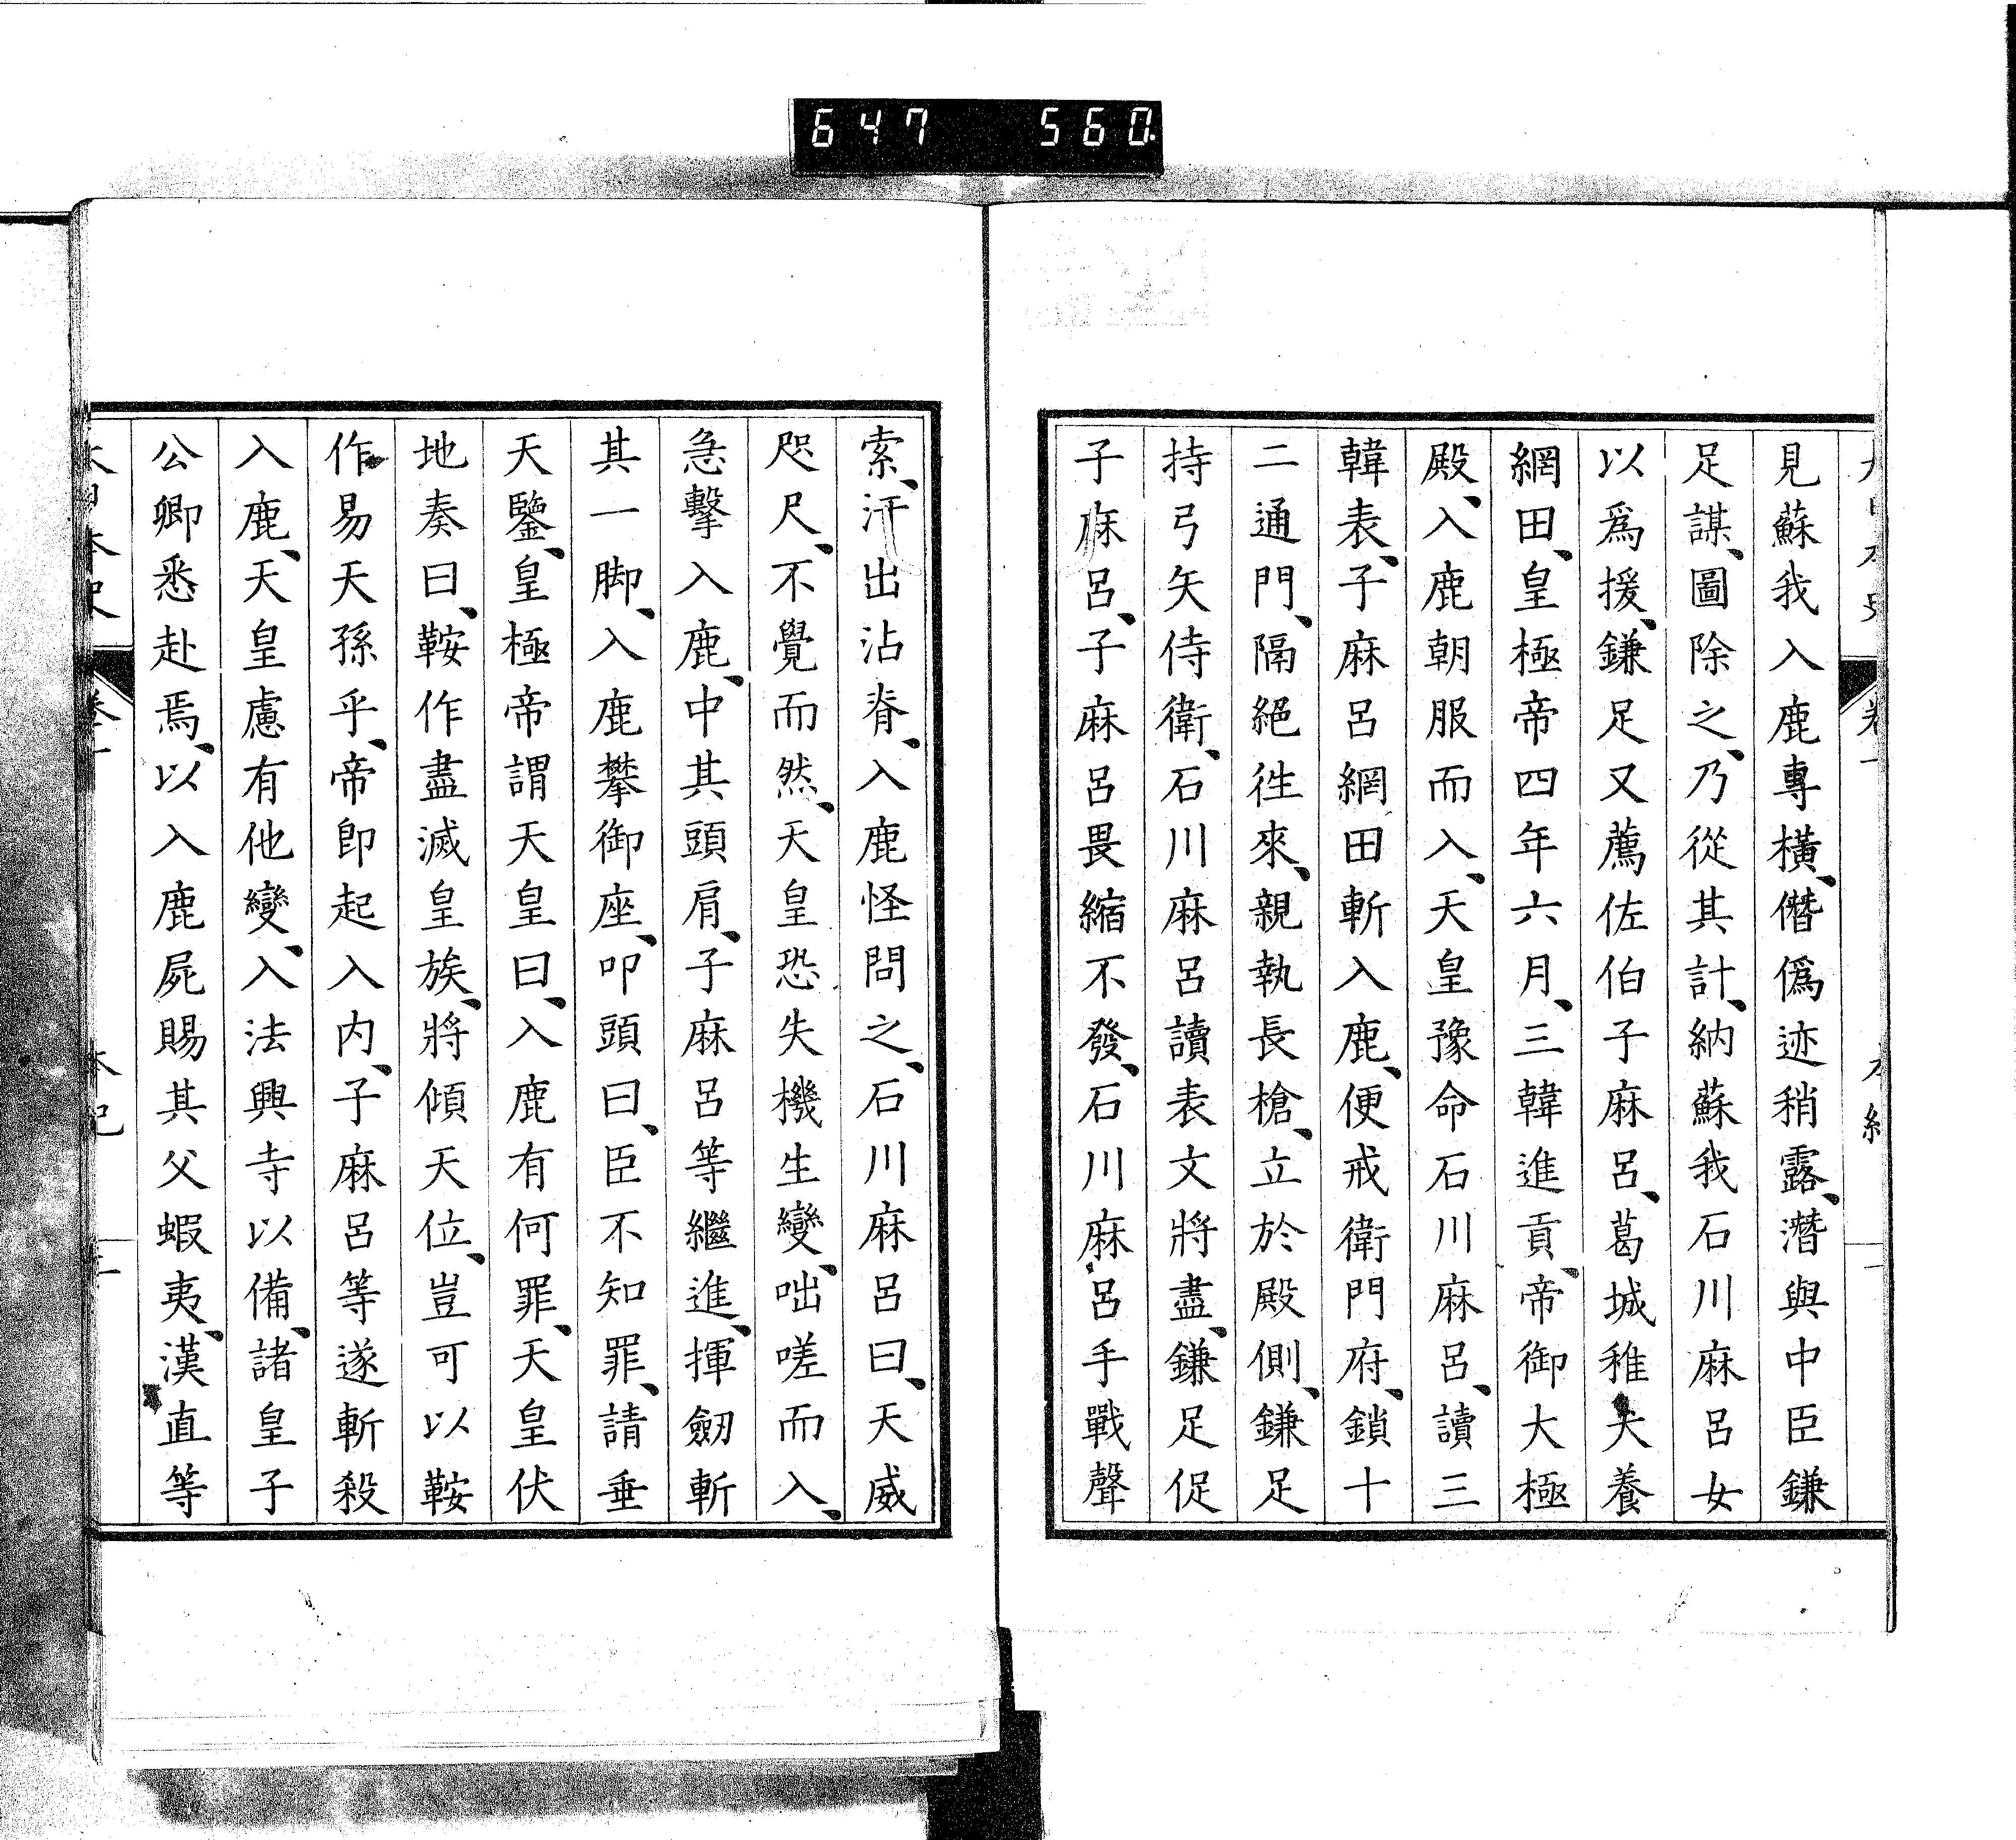 647 560.
見蘇我入鹿專橫、僭僞迹稍露、潛與中臣鎌
足謀、圖除之、乃從其計、納蘇我石川麻呂女
以爲援、鎌足又薦佐伯子麻呂、葛城稚犬養
網田、皇極帝四年六月、三韓進貢、帝御大極
殿、入鹿朝服而入、天皇豫命石川麻呂、讀三
韓表、子麻呂網田斬入鹿、便戒衛門府、鎖十
二通門、隔絕徃來、親執長槍、立於殿側、鎌足
持弓矢侍衛、石川麻呂讀表文將盡、鎌足促
子麻呂、子麻呂畏縮不發、石川麻呂手戰聲
索、汗出沾脊、入鹿怪問之、石川麻呂曰、天威
咫尺、不覺而然、天皇恐失機生變、咄嗟而入、
急擊入鹿、中其頭肩、子麻呂等繼進、揮劒斬
其一脚、入鹿攀御座、叩頭曰、臣不知罪、請垂
天鑒、皇極帝謂天皇曰、入鹿有何罪、天皇伏
地奏曰、鞍作盡滅皇族、將傾天位、豈可以鞍
作易天孫乎、帝卽起入內、子麻呂等遂斬殺
入鹿、天皇慮有他變、入法興寺以備、諸皇子
公卿悉赴焉、以入鹿屍賜其父蝦夷、漢直等